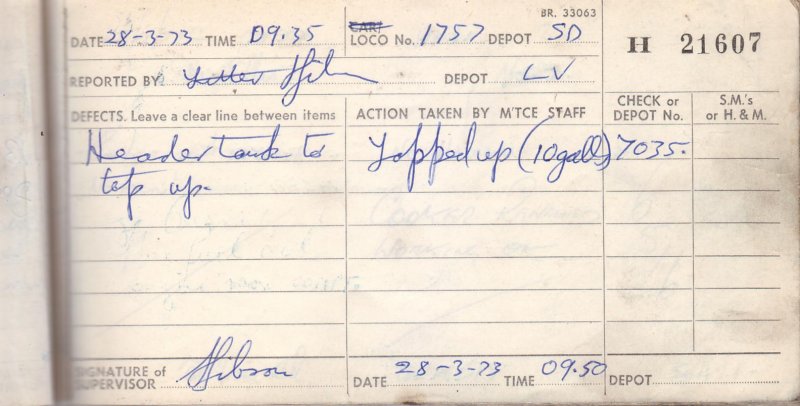 BR. 33063
DATE 28-3-73 TIME 09.35 LOCO No. 1757 DEPOT SD
H 21607
REPORTED BY DEPOT LV
DEFECTS. Leave a clear line between items
ACTION TAKEN BY M'TCE STAFF
CHECK or DEPOT No.
S.M.'s or H. & M.
Header tank to Topped up (10 galls) 7035.
top up.
SIGNATURE of SUPERVISOR Gibson
DATE 28-3-73 TIME 09.50 DEPOT